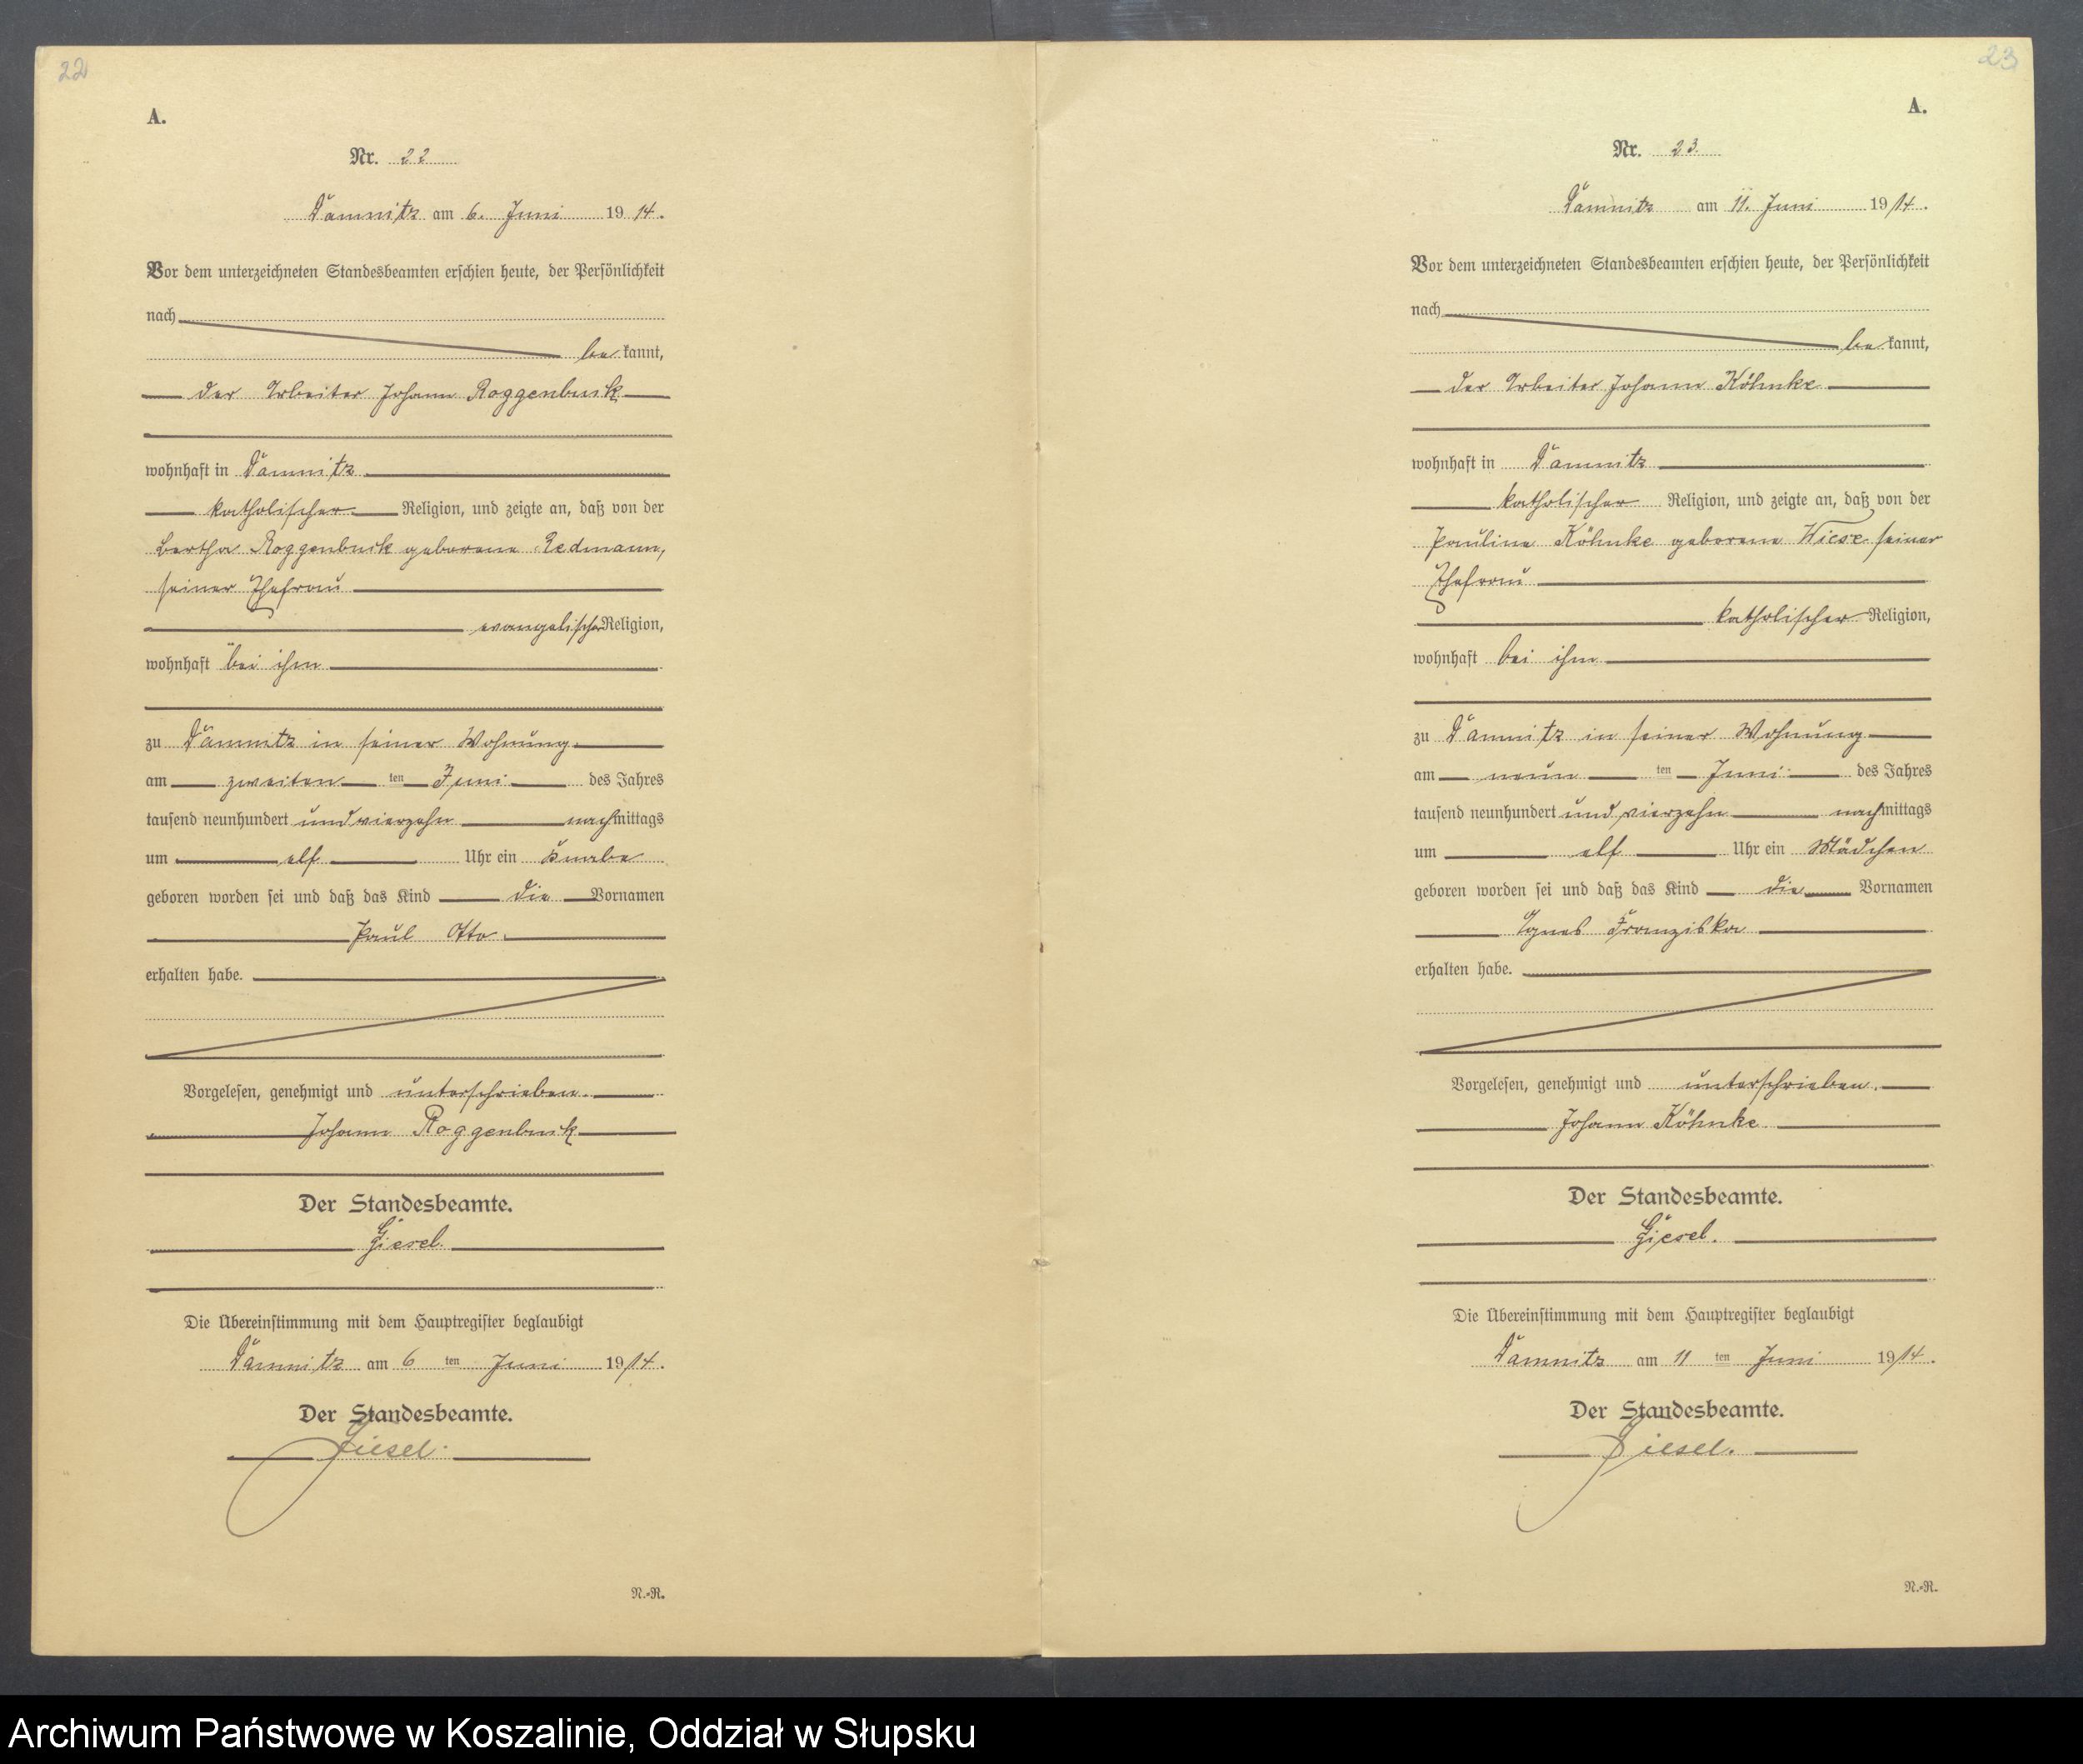 22
A.
Nr. 22
Damnitz am 6. Juni 1914.
Vor dem unterzeichneten Standesbeamten erschien heute, der Persönlichkeit
nach
bekannt,
der Arbeiter Johann Roggenbuck
wohnhaft in Damnitz
katholischer Religion, und zeigte an, daß von der
Bertha Roggenbuck geborene Redmann,
seiner Ehefrau
evangelischer Religion,
wohnhaft bei ihm
zu Damnitz in seiner Wohnung
am zweiten ten Juni des Jahres
tausend neunhundert und vierzehn nachmittags
um elf Uhr ein Knabe
geboren worden sei und daß das Kind die Vornamen
Paul Otto
erhalten habe.
Vorgelesen, genehmigt und unterschrieben.
Johann Roggenbuck
Der Standesbeamte.
Giesel.
Die Übereinstimmung mit dem Hauptregister beglaubigt
Damnitz am 6 ten Juni 1914.
Der Standesbeamte.
Giesel.
N.-R.
23
A.
Nr. 23.
Damnitz am 11. Juni 1914.
Vor dem unterzeichneten Standesbeamten erschien heute, der Persönlichkeit
nach
bekannt,
der Arbeiter Johann Köhnke
wohnhaft in Damnitz
katholischer Religion, und zeigte an, daß von der
Pauline Köhnke geborene Wiese seiner
Ehefrau
katholischer Religion,
wohnhaft bei ihm
zu Damnitz in seiner Wohnung
am neun ten Juni des Jahres
tausend neunhundert und vierzehn nachmittags
um elf Uhr ein Mädchen
geboren worden sei und daß das Kind die Vornamen
Agnes Franziska
erhalten habe.
Vorgelesen, genehmigt und unterschrieben.
Johann Köhnke
Der Standesbeamte.
Giesel.
Die Übereinstimmung mit dem Hauptregister beglaubigt
Damnitz am 11 ten Juni 1914.
Der Standesbeamte.
Giesel.
N.-R.
Archiwum Państwowe w Koszalinie, Oddział w Słupsku